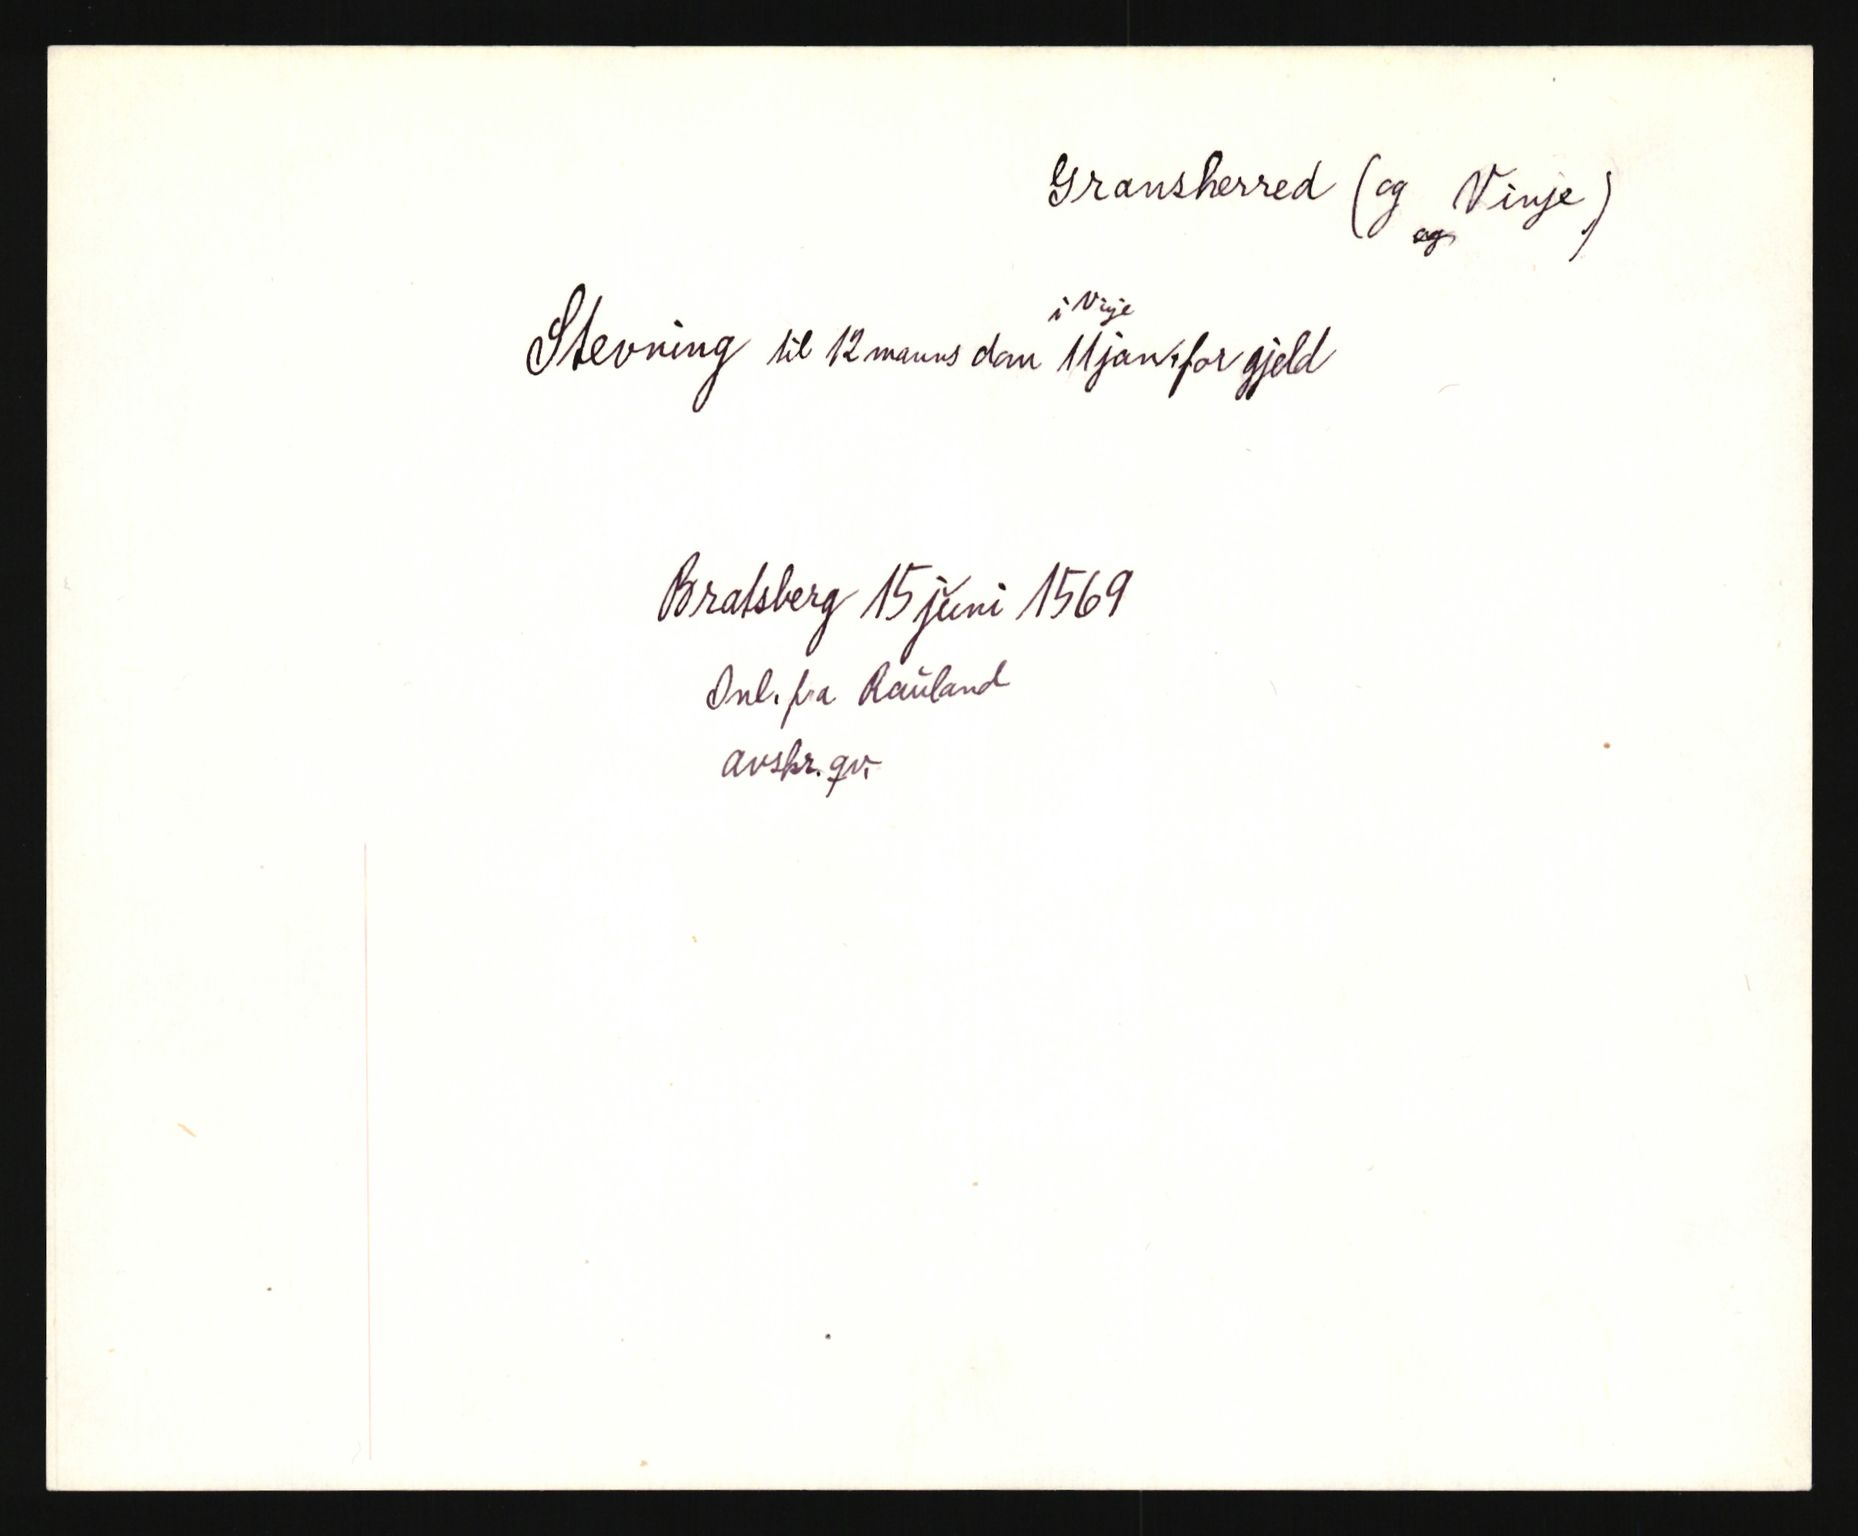 Gransherred (og Vinje)
og
i Vinje
Stevning til 12 manns dom 11 jan. for gjeld
Bratsberg 15 juni 1569
Innl. fra Rauland
avskr. gv.